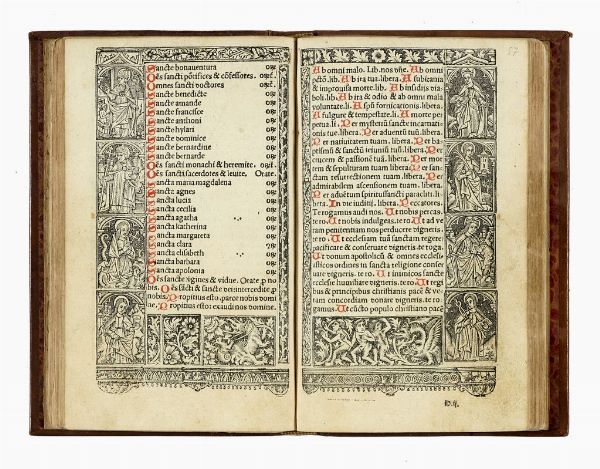 Sancte bonauentura ora
Oēs sancti pōtifices & cōfessores. orat.
Omnes sancti doctores orat.
Sancte benedicte ora
Sancte amande ora
Sancte francisce ora
Sancte anthoni ora
Sancte hylari ora
Sancte dominice ora
Sancte bernardine ora
Sancte bernarde ora
Oēs sancti monachi & heremite. orat.
Oēs sancti sacerdotes & leuite. Orate.
Sancta maria magdalena ora
Sancta agnes ora
Sancta lucia ora
Sancta cecilia ora
Sancta agatha ora
Sancta katherina ora
Sancta margareta ora
Sancta clara ora
Sancta elisabeth ora
Sancta barbara ora
Sancta apolonia ora
Oēs sancte v̄gines & vidue. Orate p̄ no
bis. Oēs sancti & sancte dei intercedite p̄
nobis. Propitius esto. parce nobis domi
ne. Propitius esto: exaudi nos domine.
57
Ab omni malo. Lib. nos dn̄e. Ab omni
pctō. lib. Ab ira tua. libera. A subitanea
& improuisa morte. lib. Ab insidiis dia
boli. lib. Ab ira & odio & ab omni mala
voluntate. li. A spū fornicationis. libera.
A fulgure & tempestate. li. A morte per
petua. li. Per mysteriū sancte incarnati
onis tue. libera. Per aduentū tuū. libera.
Per natiuitatem tuam. libera. Per ba-
ptismū & sanctū ieiuniū tuū. libera. Per
crucem & passionē tuā. libera. Per mor
tem & sepulturam tuam libera. Per san-
ctam resurrectionem tuam. libera. Per
admirabilem ascensionem tuam. libera.
Per aduētum spiritussancti paracliti. li
bera. In die iudicii. libera. Peccatores.
Te rogamus audi nos. Ut nobis percas.
te ro. Ut nobis indulgeas. te ro. Ut ad ve
ram penitentiam nos perducere digneris.
te ro. Ut ecclesiam tuā sanctam regere
pacificare & conseruare digneris. te roga.
Ut donum apostolicū & omnes ecclesi-
asticos ordines in sancta religione conser
uare digneris. te ro. Ut inimicos sancte
ecclesie humiliare digneris. te ro. Ut regi
bus & principibus christianis pacē & ve-
ram concordiam donare digneris. te ro
gamus. Ut cūcto populo christiano pacē
D.i.